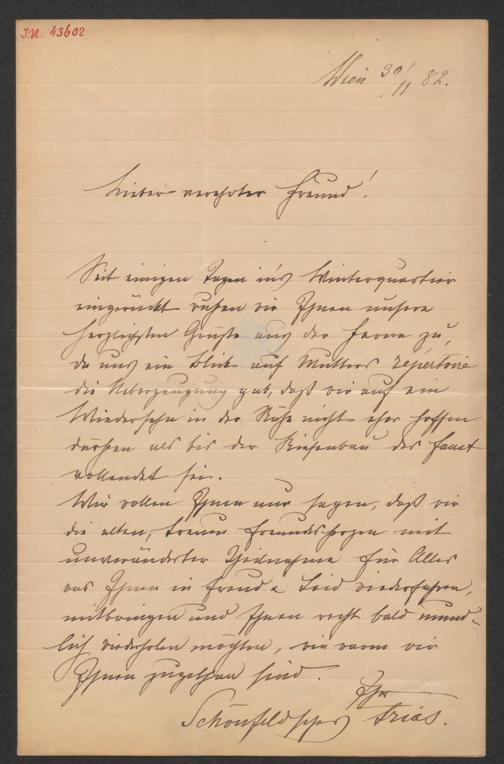 I.N. 43602
Wien 30/11 82.
Lieber verehrter Freund!
Seit einigen Tagen in's Winterquartier
eingerückt rufen wir Ihnen unsere
herzlichsten Grüße aus der Ferne zu,
da uns ein Blick auf Mutters répertoire
die Ueberzeugung gab, daß wir auf ein
Wiedersehn in der Nähe nicht eher hoffen
dürfen als bis der Riesenbau des Faust
vollendet sei.
Wir wollen Ihnen nur sagen, daß wir
die alten, treuen Freundsherzen mit
unveränderter Theilnahme für Alles
was Ihnen in Freud & Leid wiederfahren,
mitbringen und Ihnen recht bald münd-
lich wiederholen möchten, wie warm wir
Ihnen zugethan sind.
Ihr
Schönfeld